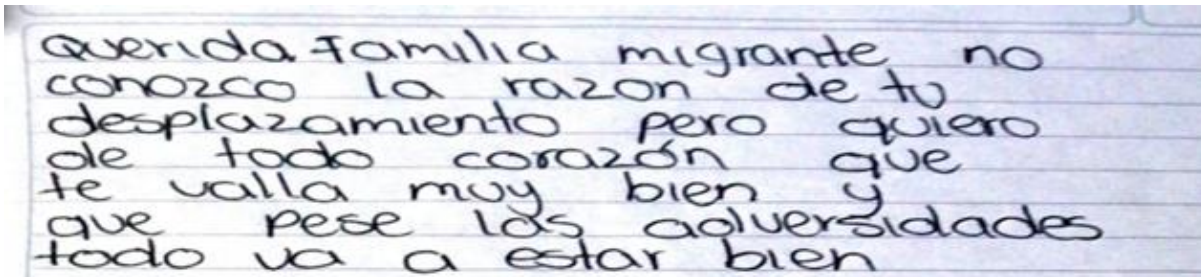 Querida Familia migrante no
conozco la razon de tu
desplazamiento pero quiero
de todo corazón que
te valla muy bien y
que pese las adversidades
todo va a estar bien